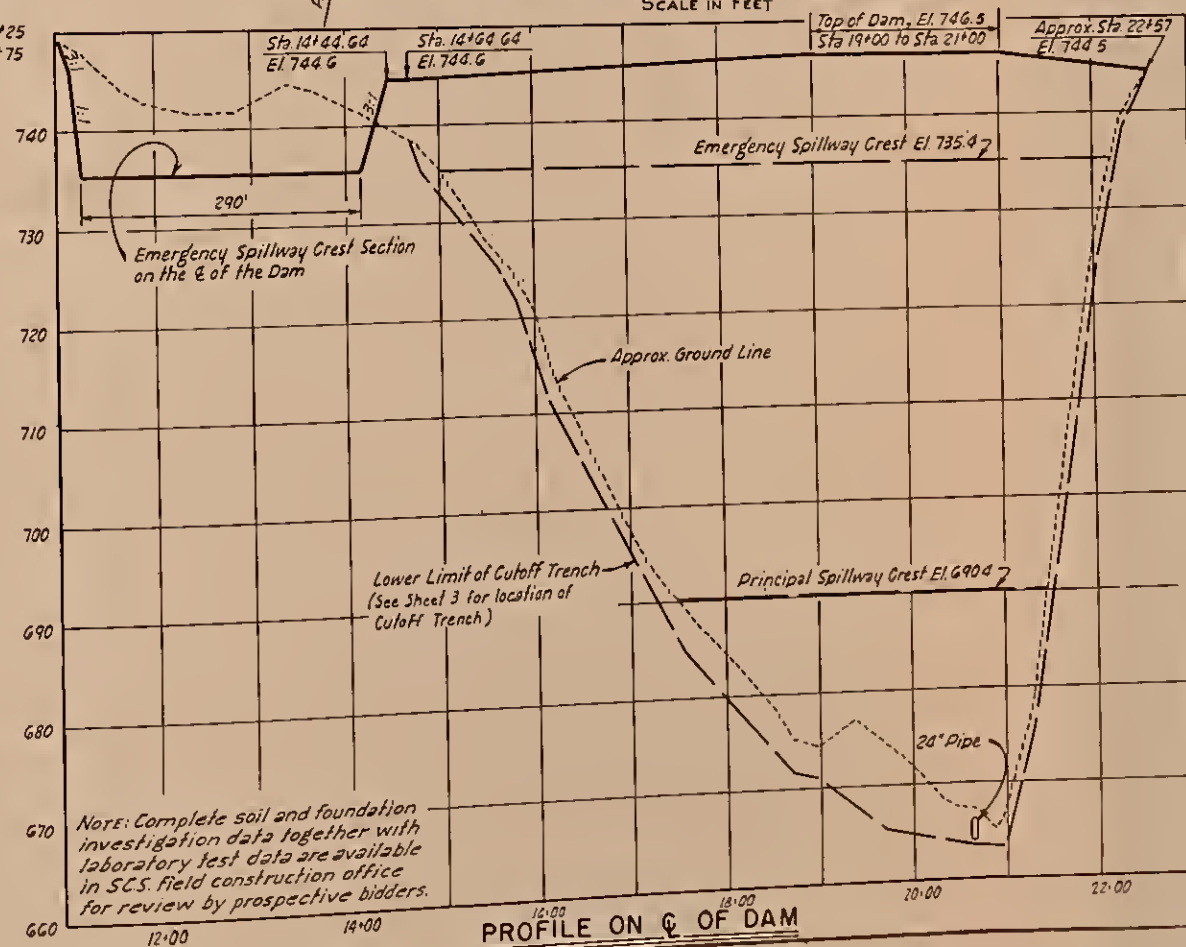 SCALE IN FEET
+25
+75
Sta. 14+44.64
El. 744.6
Sta. 14+64.64
El. 744.6
Top of Dam, El. 746.5
Sta 19+00 to Sta 21+00
Approx. Sta. 22+57
El. 744.5
3:1
740
Emergency Spillway Crest El. 735.4
290'
730
Emergency Spillway Crest Section
on the ℄ of the Dam
720
Approx. Ground Line
710
700
Lower Limit of Cutoff Trench
(See Sheet 3 for location of
Cutoff Trench)
Principal Spillway Crest El. 690.4
690
680
24" Pipe
670
NOTE: Complete soil and foundation
investigation data together with
laboratory test data are available
in SCS. field construction office
for review by prospective bidders.
660
12+00
14+00
16+00
18+00
20+00
22+00
PROFILE ON ℄ OF DAM